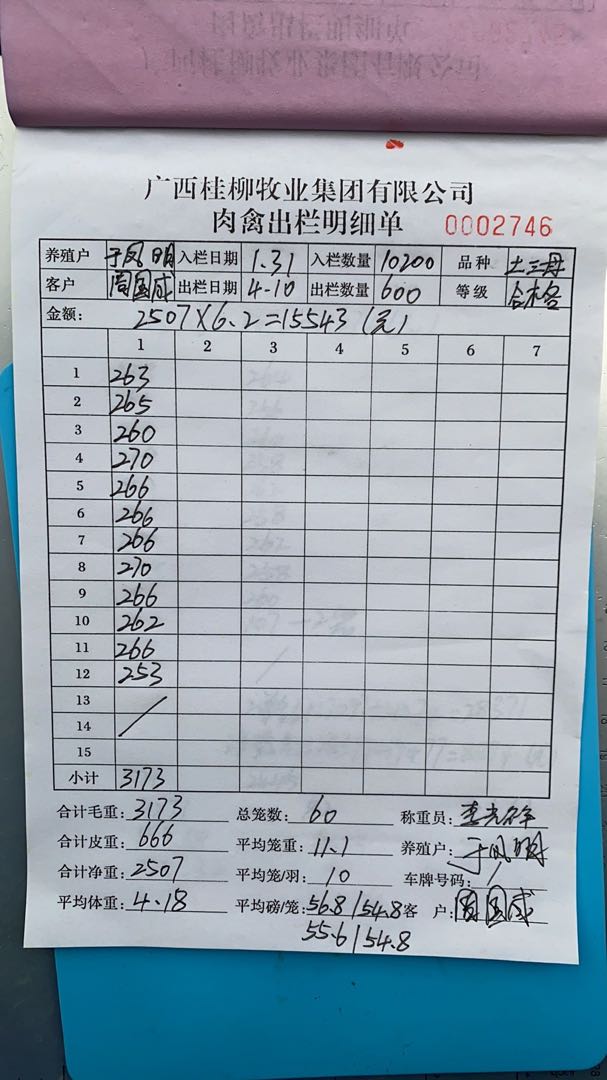 广西桂柳牧业集团有限公司
肉禽出栏明细单 0002746
养殖户 于凤明 入栏日期 1.31 入栏数量 10200 品种 土三母
客户 周国成 出栏日期 4.10 出栏数量 600 等级 合格
金额: 2507×6.2=15543(元)
1 2 3 4 5 6 7
1 263
2 265
3 260
4 270
5 266
6 266
7 266
8 270
9 266
10 262
11 266
12 253
13
14
15
小计 3173
合计毛重: 3173 总笼数: 60 称重员: 李
合计皮重: 666 平均笼重: 11.1 养殖户: 于凤明
合计净重: 2507 平均笼/羽: 10 车牌号码: /
平均体重: 4.18 平均磅/笼: 56.8/54.8 客 户: 周国成
55.6/54.8